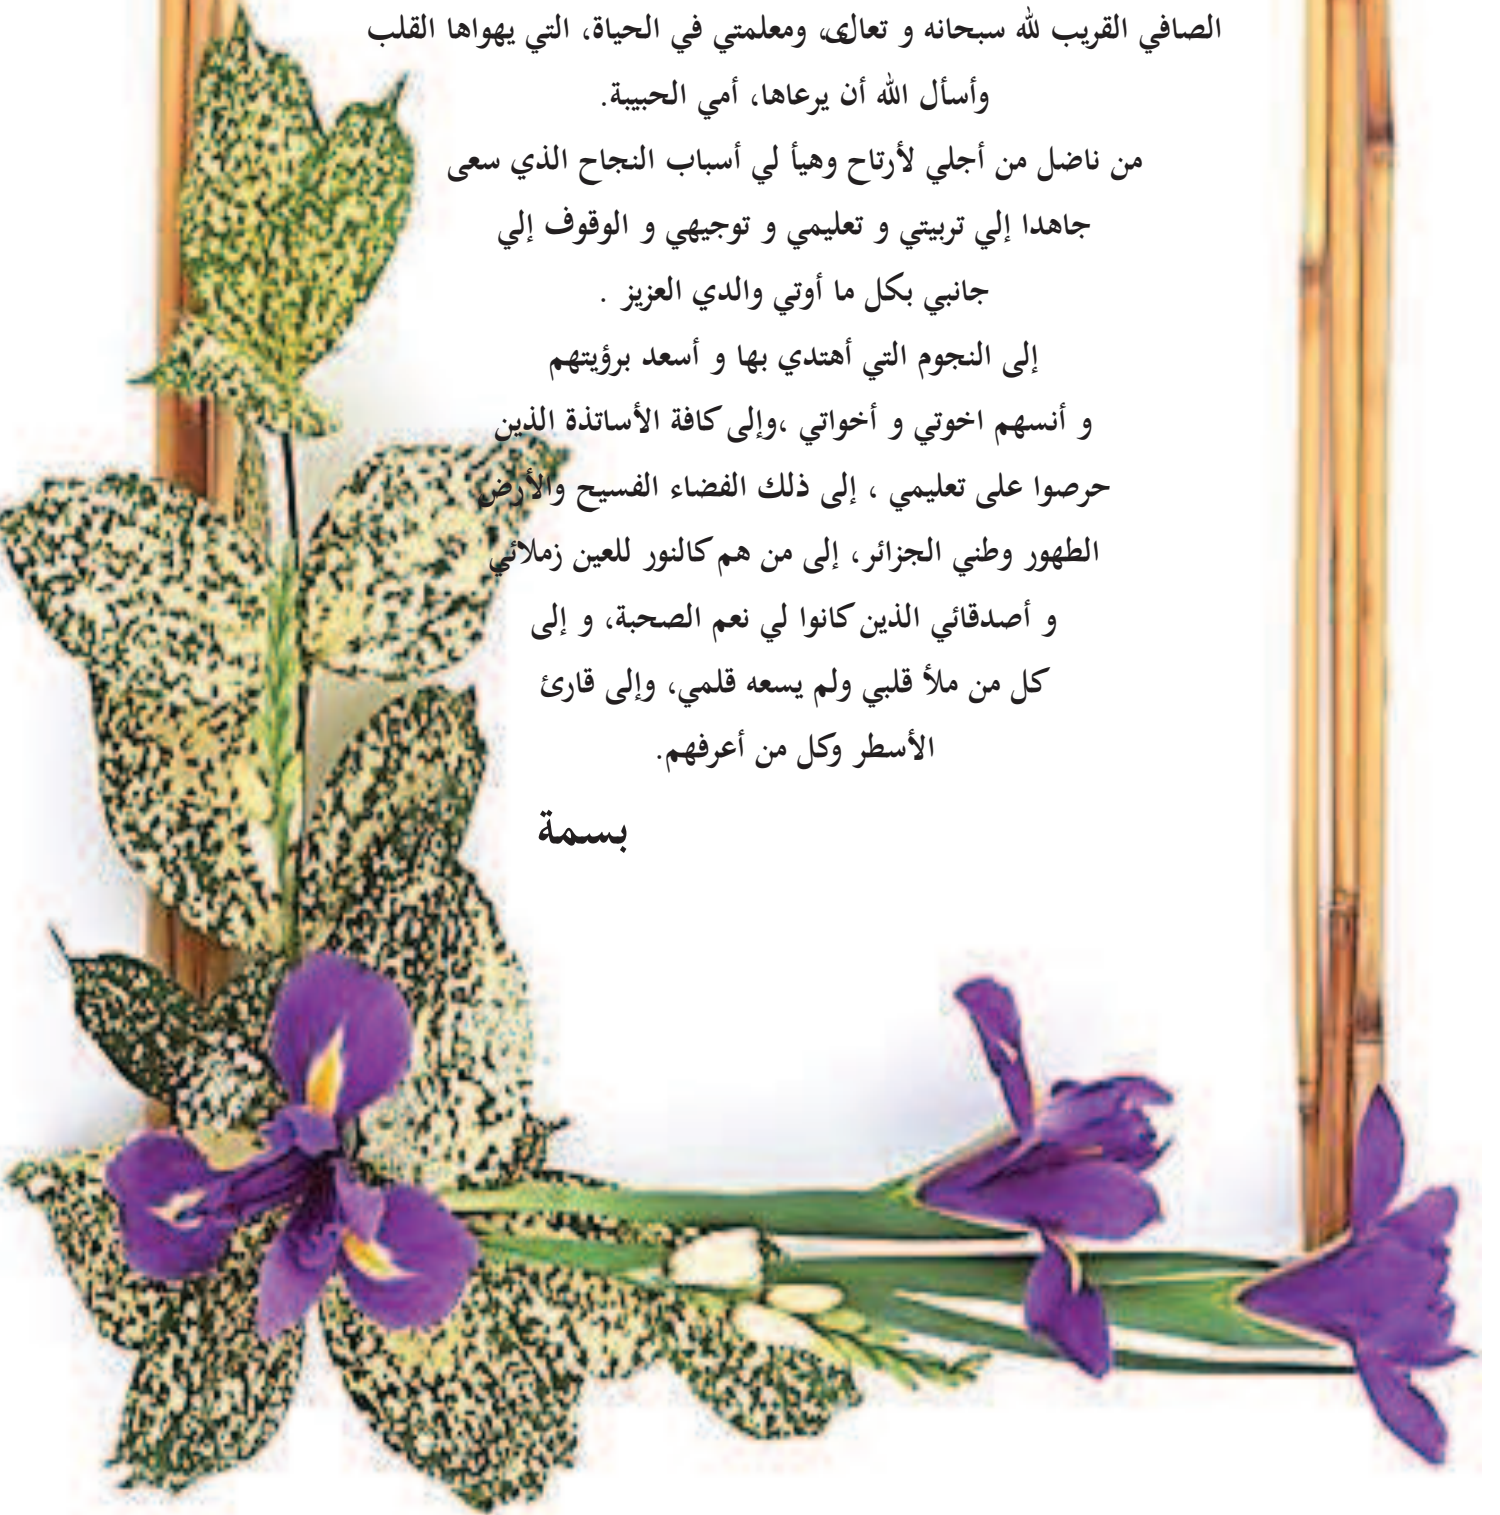 الصافي القريب لله سبحانه و تعالى، ومعلمتي في الحياة، التي يهواها القلب
وأسأل الله أن يرعاها، أمي الحبيبة.
من ناضل من أجلي لأرتاح وهيأ لي أسباب النجاح الذي سعى
جاهدا إلي تربيتي و تعليمي و توجيهي و الوقوف إلي
جانبي بكل ما أوتي والدي العزيز .
إلى النجوم التي أهتدي بها و أسعد برؤيتهم
و أنسهم اخوتي و أخواتي ،وإلى كافة الأساتذة الذين
حرصوا على تعليمي ، إلى ذلك الفضاء الفسيح والأرض
الطهور وطني الجزائر، إلى من هم كالنور للعين زملائي
و أصدقائي الذين كانوا لي نعم الصحبة، و إلى
كل من ملأ قلبي ولم يسعه قلمي، وإلى قارئ
الأسطر وكل من أعرفهم.
بسمة